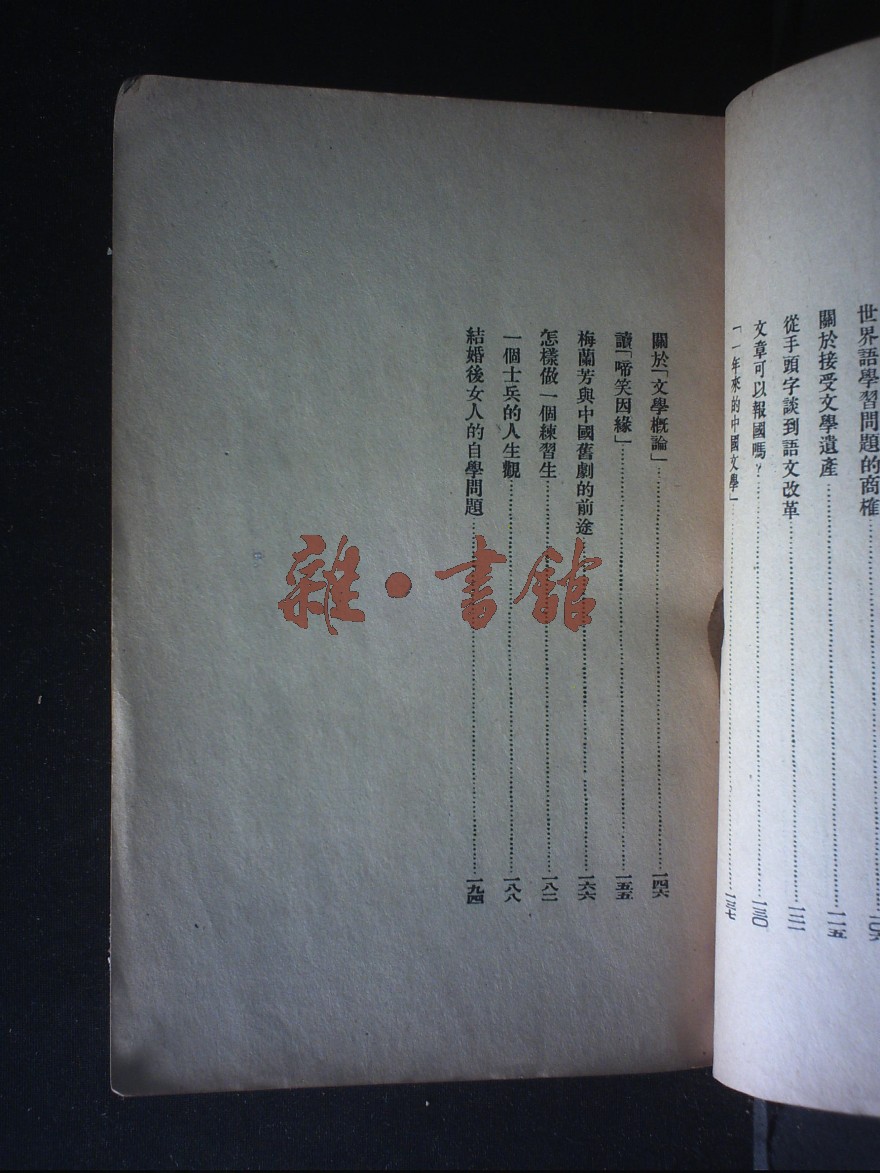 世界語學習問題的商榷……一〇六
關於接受文學遺產……一一五
從手頭字談到語文改革……一二一
文章可以報國嗎？……一三〇
「一年來的中國文學」……一三七
關於「文學概論」……一四六
讀「啼笑因緣」……一五五
梅蘭芳與中國舊劇的前途……一六六
怎樣做一個練習生……一八二
一個士兵的人生觀……一八八
結婚後女人的自學問題……一九四
雜·書館